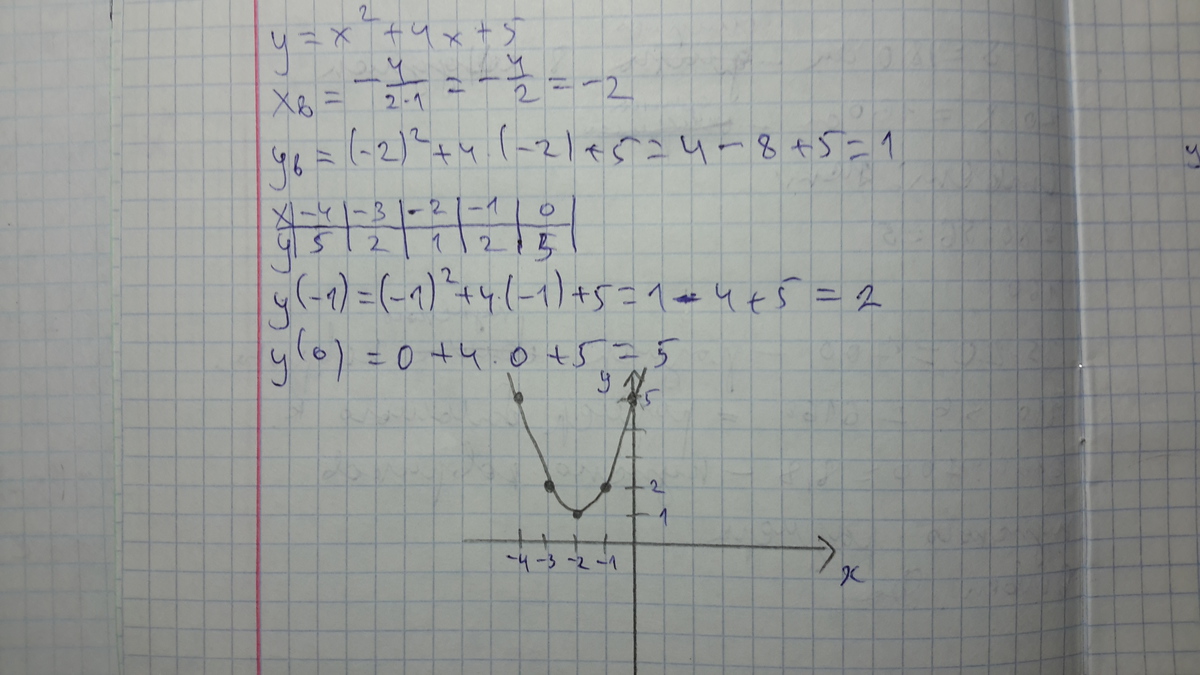 y = x² + 4x + 5
xв = -4/2·1 = -4/2 = -2
yв = (-2)² + 4·(-2) + 5 = 4 - 8 + 5 = 1
x | -4 | -3 | -2 | -1 | 0 |
y | 5 | 2 | 1 | 2 | 5 |
y(-1) = (-1)² + 4·(-1) + 5 = 1 - 4 + 5 = 2
y(0) = 0 + 4·0 + 5 = 5
y
5
2
1
-4 -3 -2 -1
x
y